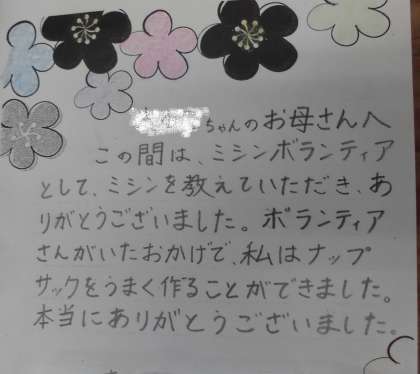 ちゃんのお母さんへ
この間は、ミシンボランティア
として、ミシンを教えていただき、あ
りがとうございました。ボランティア
さんがいたおかげで、私はナップ
サックをうまく作ることができました。
本当にありがとうございました。